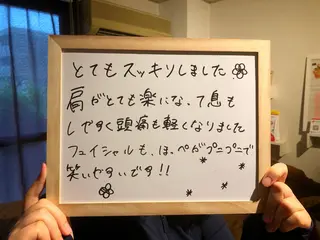 とてもスッキリしました
肩がとても楽になって息も
しやすく頭痛も軽くなりました
フェイシャルも、ほっぺがプニプニで
笑いやすいです!!